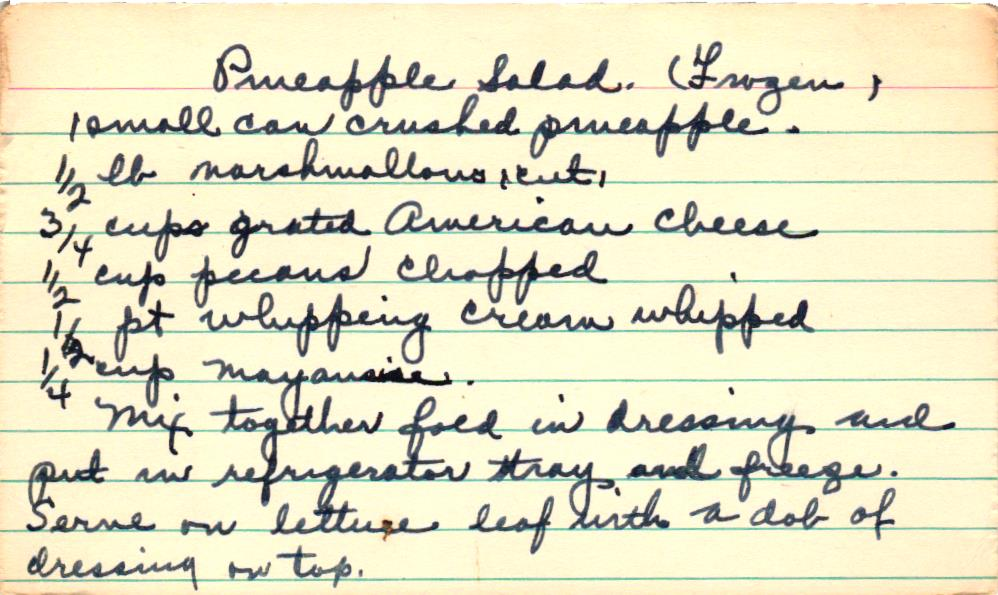 Pineapple Salad. (Frozen)
1 small can crushed pineapple.
1/2 lb marshmallows, cut,
3/4 cups grated American cheese
1/2 cup pecans chopped
1/2 pt whipping cream whipped
1/4 cup mayonaise.
Mix together fold in dressing and
put in refrigerator tray and freeze.
Serve on lettuce leaf with a dob of
dressing on top.